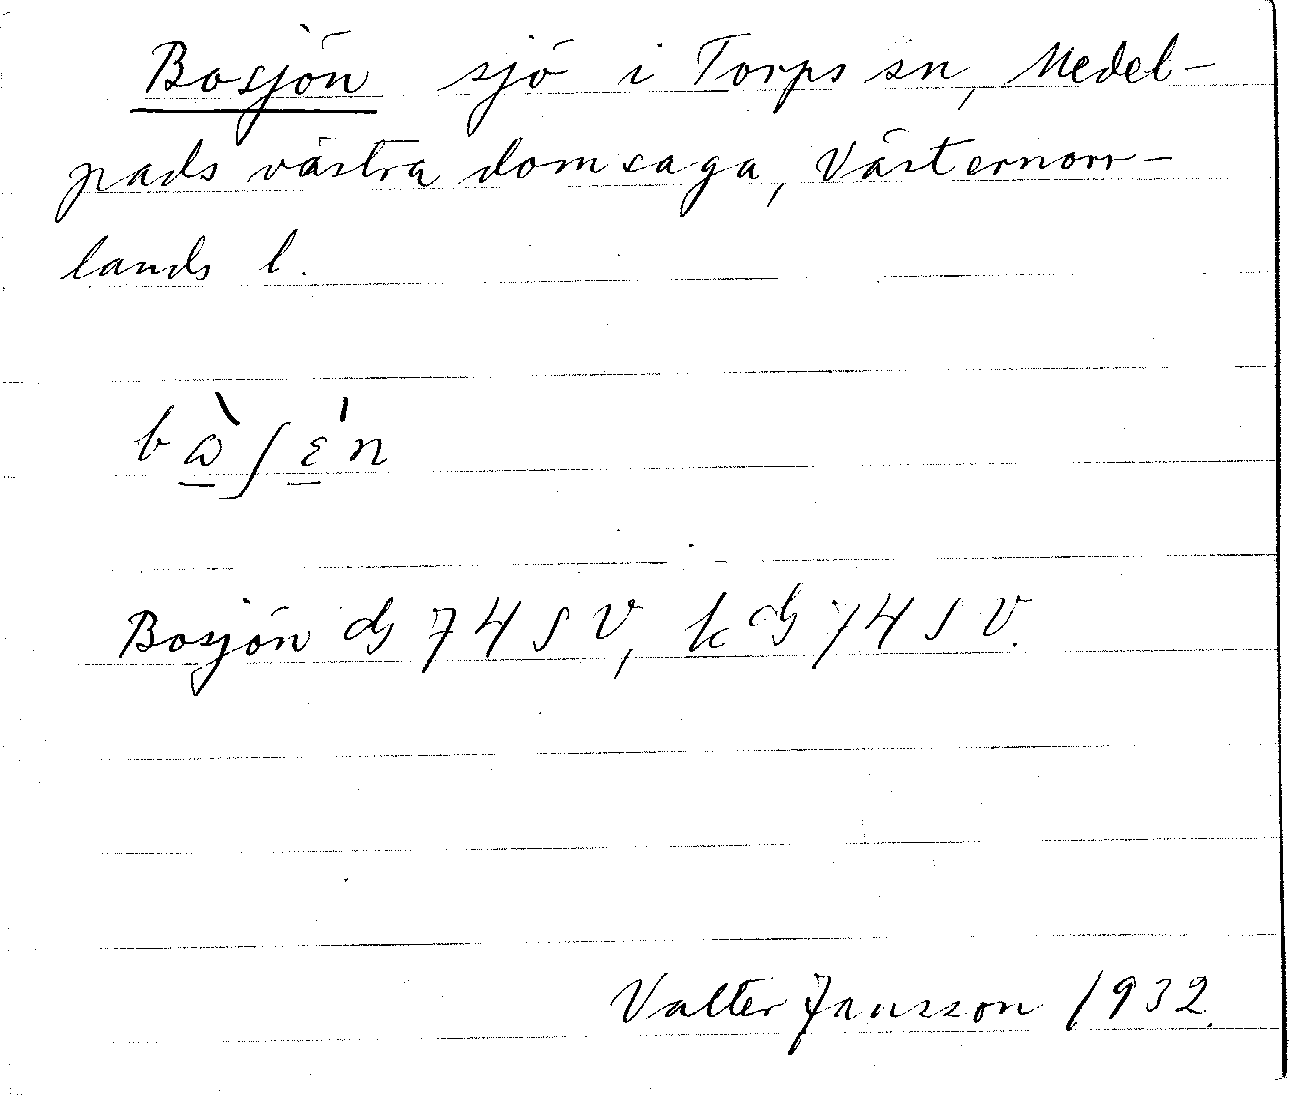 Bosjön sjö i Torps sn, Medel-
pads västra domsaga, Västernorr-
lands l.
bɷ̀ʃɛ́n
Bosjön dG 74 SV, kdG 74 SV.
Valter Jansson 1932.